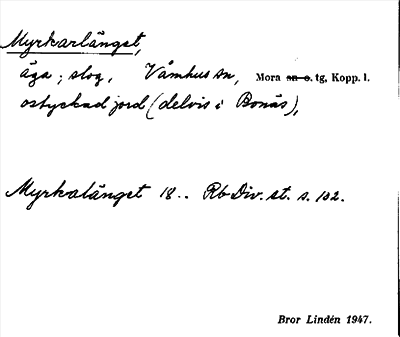 Myrkarlänget,
äga; slog, Våmhus sn, Mora sn o. tg, Kopp. l.
ostyckad jord (delvis i Bonäs),
Myrkalänget 18.. Rb Div. st. s. 102.
Bror Lindén 1947.